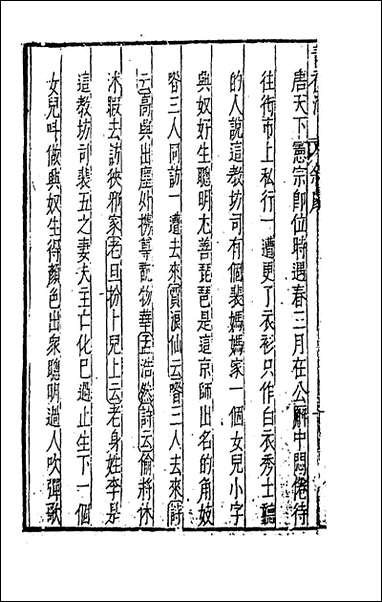 唐天下憲宗即位時遇春三月在公廨中悶倦待
往街市上私行一遭更了衣衫只作白衣秀士聽
的人說這教坊司有個裴媽媽家一個女兒小字
與奴好生聰明尤善琵琶是這京師出名的角妓
喒三人同訪一遭去來賈浪仙云喒三人去來詩
云高與出塵外携尊物華孟浩然詩云偷將休
沐暇去訪狹邪家老旦扮卜兒上云老身姓李是
這教坊司裴五之妻夫主亡化已過止生下一個
女兒叫做與奴生得顏色出衆聰明過人吹彈歌